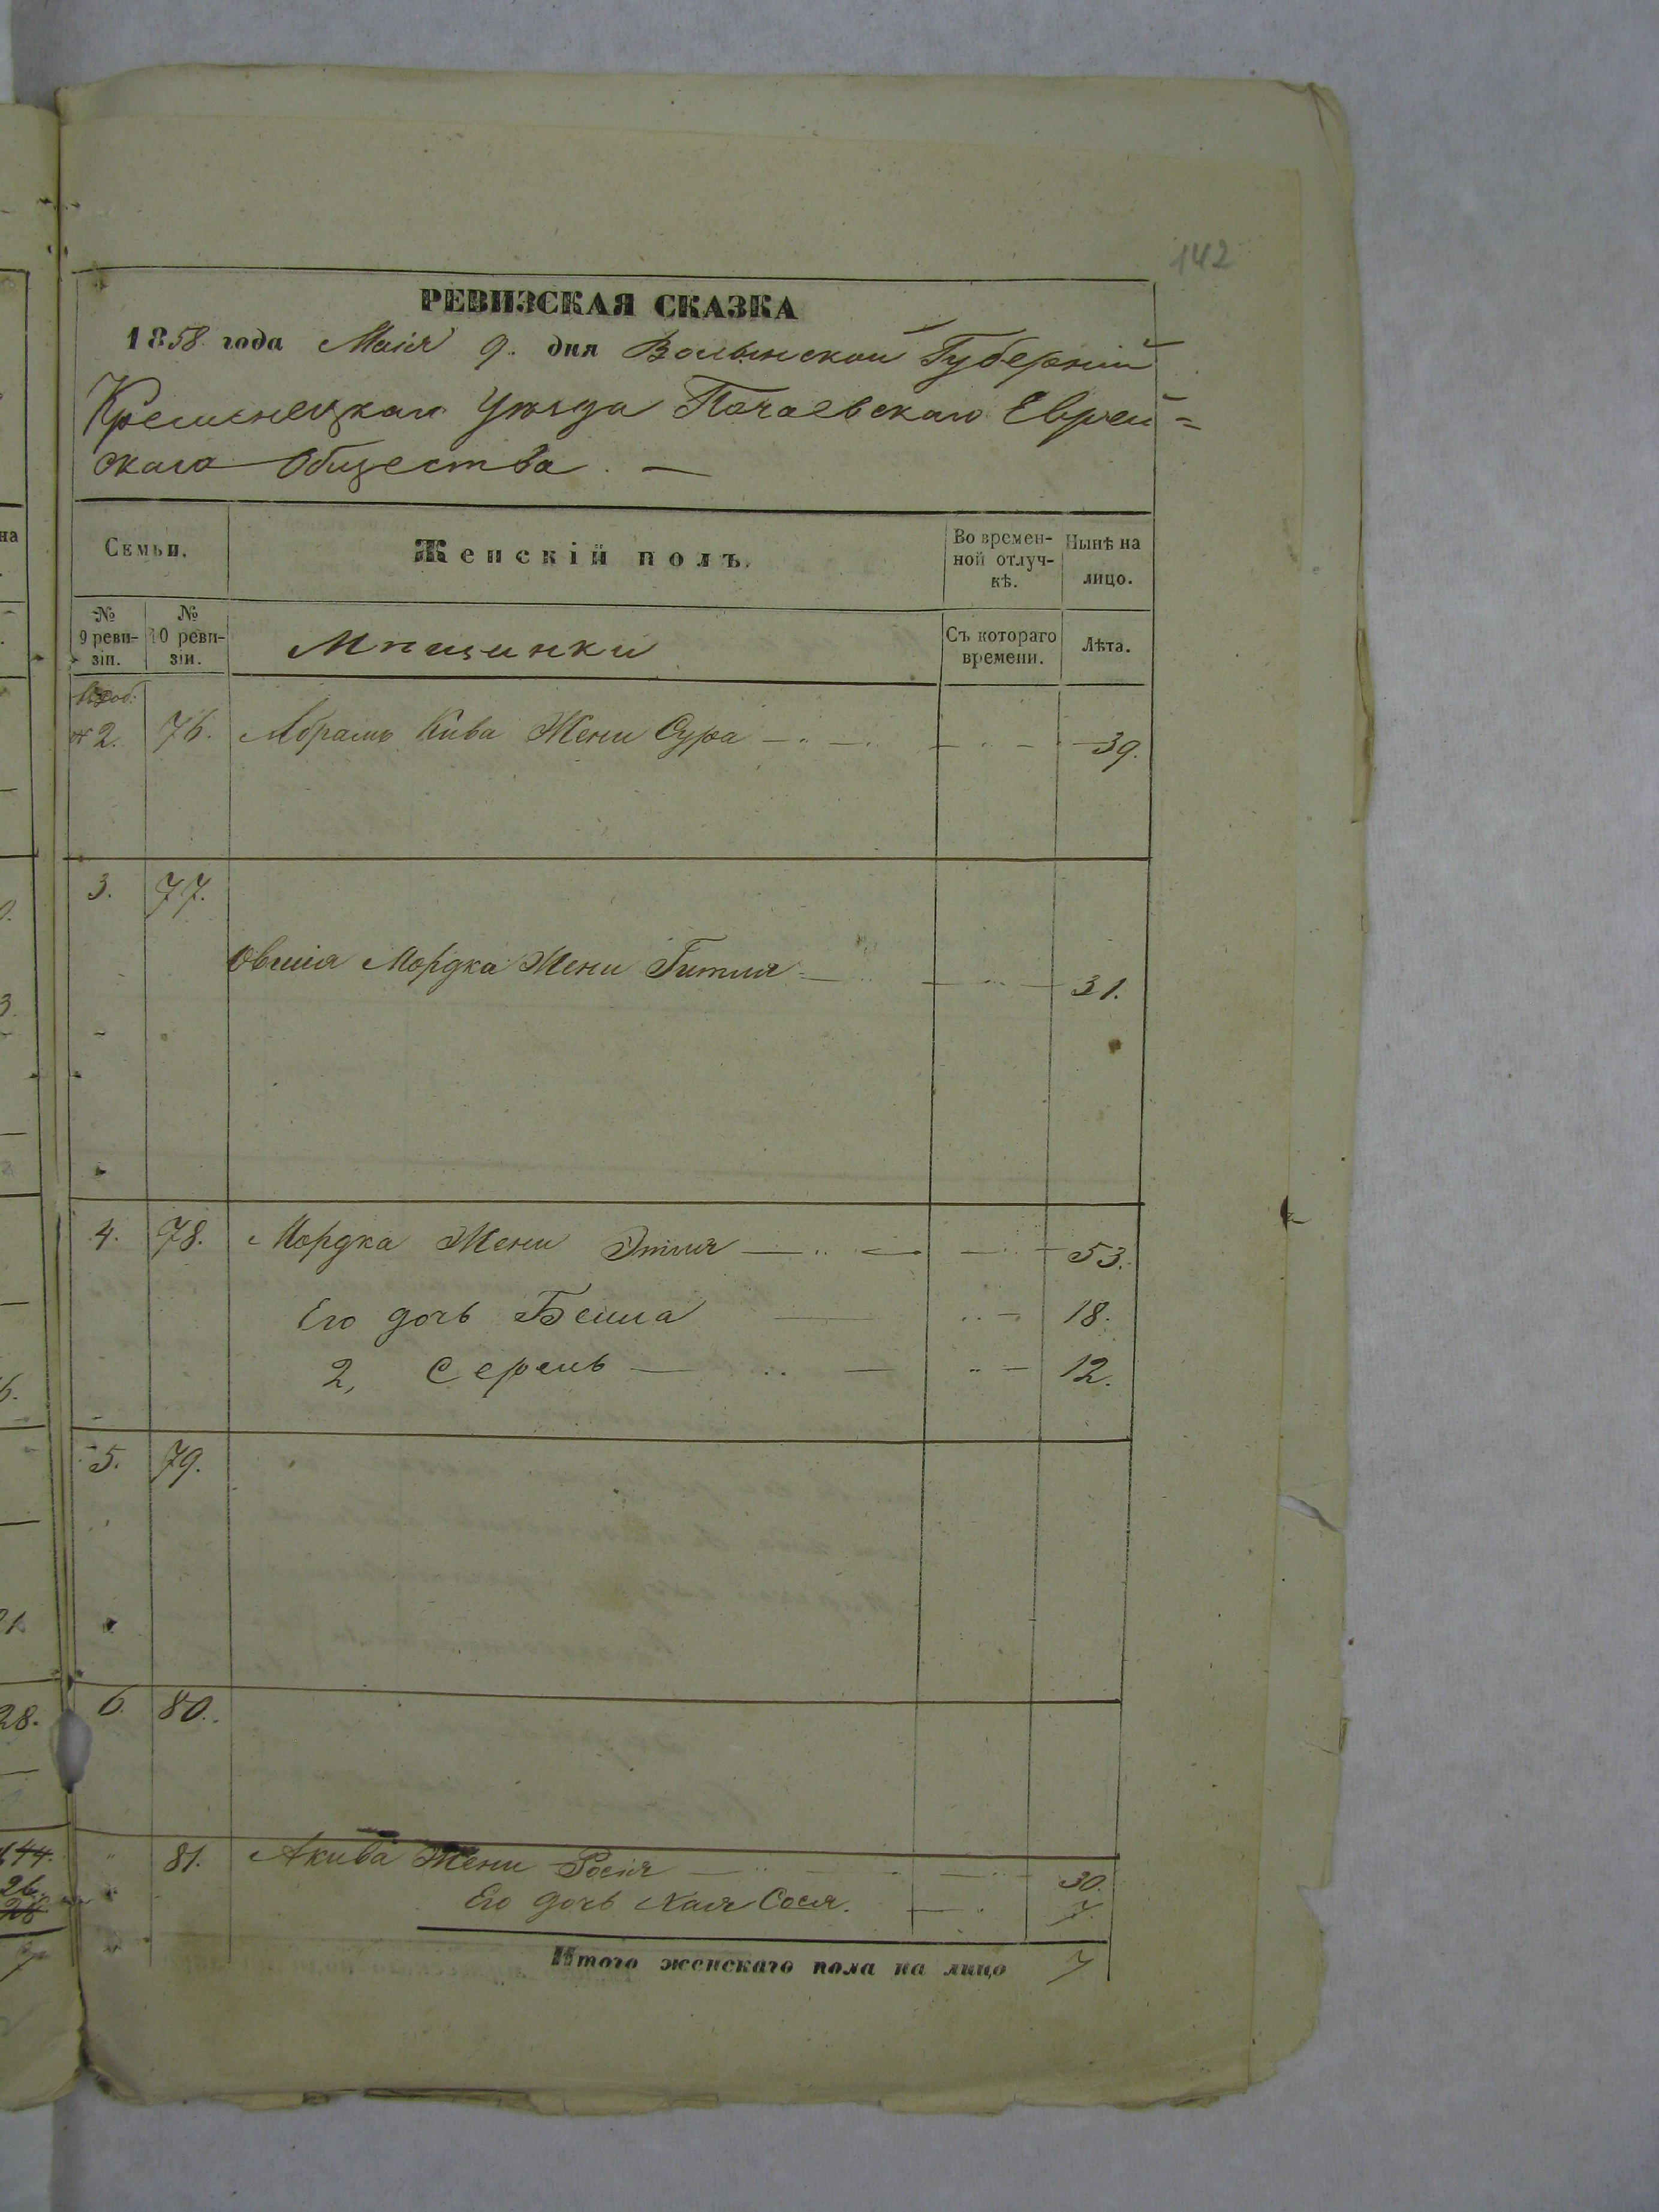 142
РЕВИЗСКАЯ СКАЗКА
1858 года Маія 9. дня Волынской Губерніи
Кременецкаго Уѣзда Почаевскаго Еврей=
скаго Общества. —
Семьи. Женскій полъ. Во времен-ной отлуч-кѣ. Нынѣ на лицо.
№ 9 реви-зіи. № 10 реви-зіи. Мѣщанки Съ котораго времени. Лѣта.
2. 76. Абрамъ Кива Жени Сура 39.
3. 77.
Овшія Мордка Жени Гитля 31.
4. 78. Мордка Жени Этля 53.
Его дочь Бейла 18.
2, Серель 12.
5. 79.
6. 80.
81. Акива Жени Росія 30.
Его дочь Хая Сося. 7.
Итого женскаго пола на лицо 7